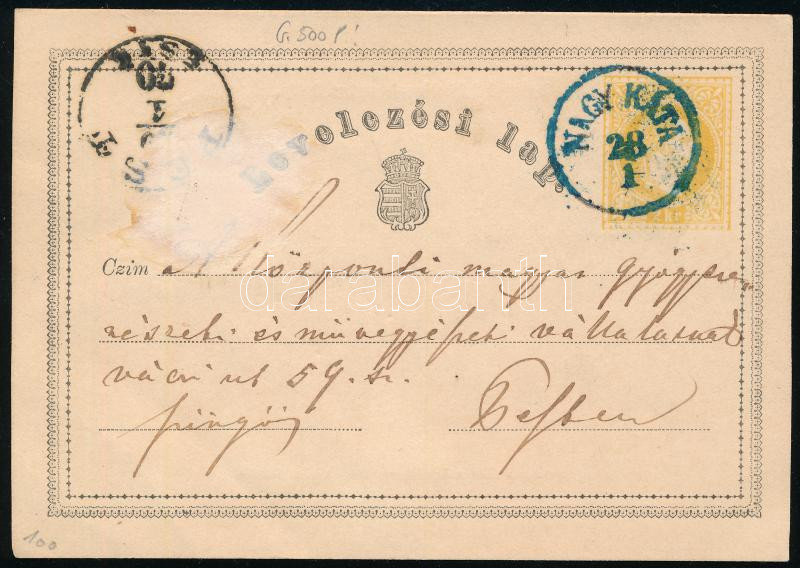 G. 500 P!
PEST
70
1
Levelezési lap.
NAGY KÁTA
28
1
darabanth
Czim a' Központi magyar gyógysze„
részeti és művegyészeti vállalatnak
váczi ut 59. sz.
Pesten
100